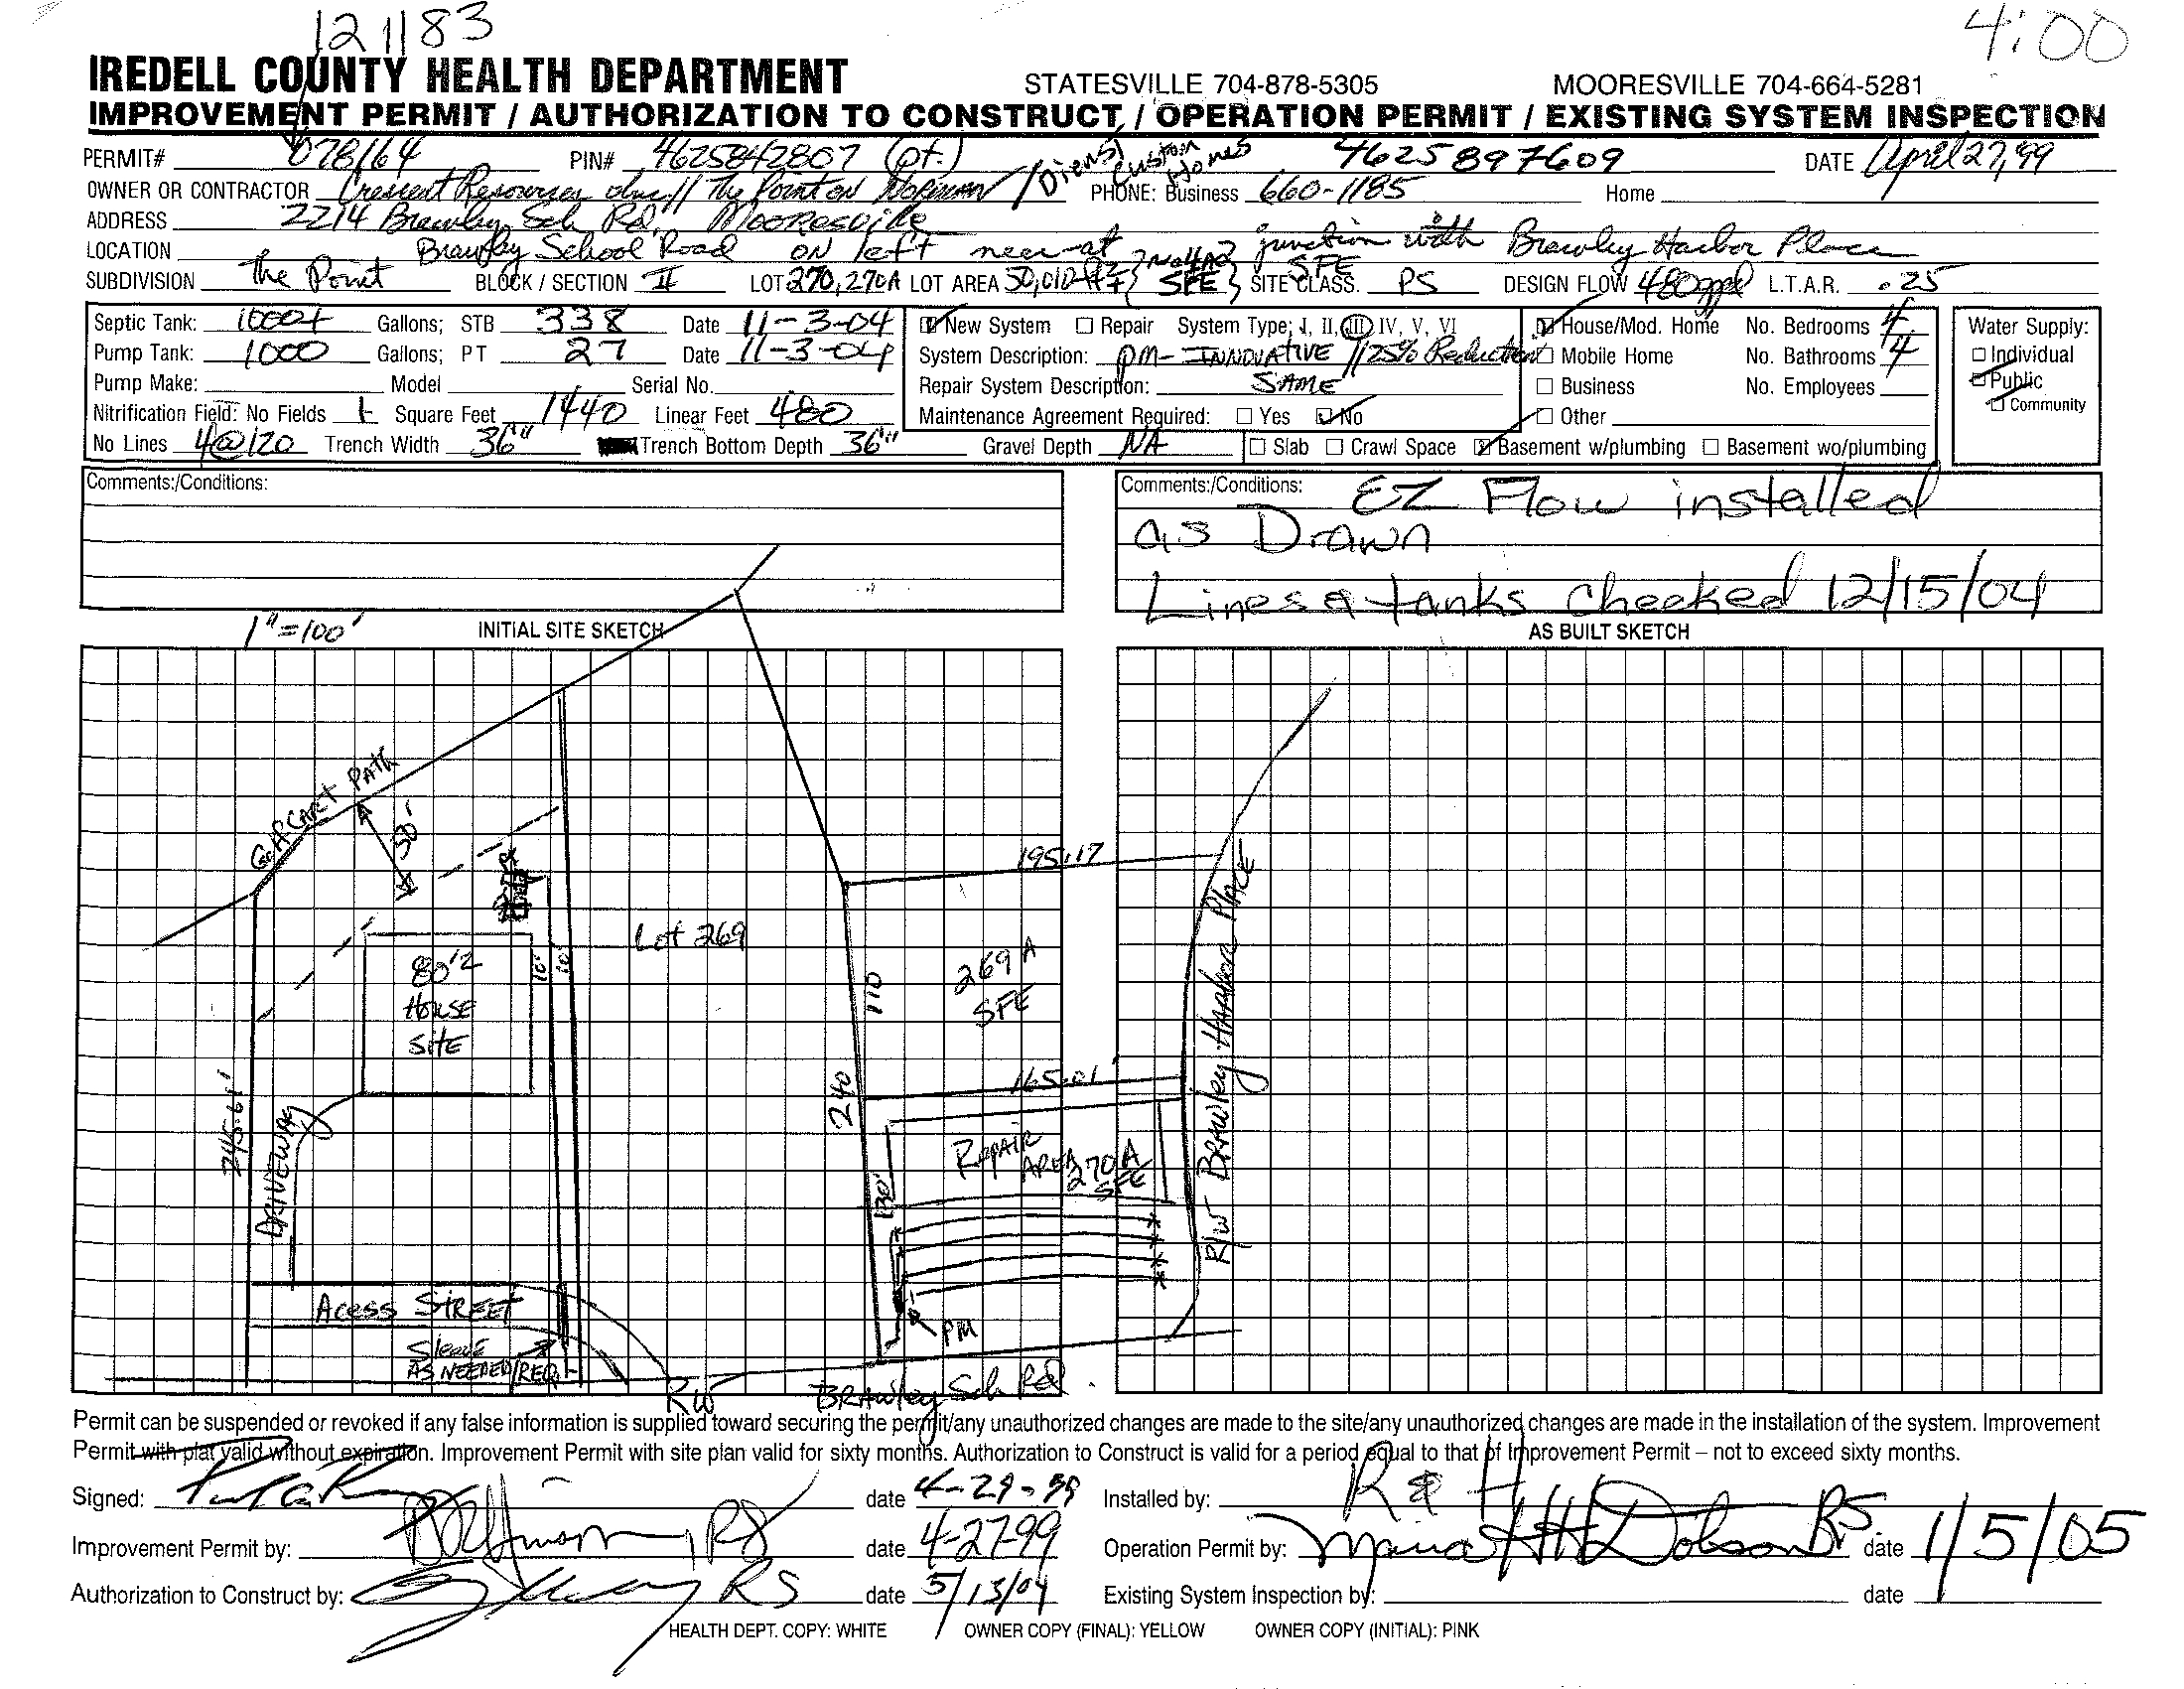 121183
4:00
IREDELL COUNTY HEALTH DEPARTMENT STATESVILLE 704-878-5305 MOORESVILLE 704-664-5281
IMPROVEMENT PERMIT / AUTHORIZATION TO CONSTRUCT / OPERATION PERMIT / EXISTING SYSTEM INSPECTION
PERMIT# 078164 PIN# 4625842807 (pt.) 4625897609 DATE April 27, 99
OWNER OR CONTRACTOR Crescent Resources Inc // The Point on Norman / Custom Homes PHONE: Business 660-1185 Home
ADDRESS 2214 Brawley Sch Rd, Mooresville
LOCATION Brawley School Road on left near at junction with Brawley Harbor Place
SUBDIVISION The Point BLOCK / SECTION II LOT 270, 270A LOT AREA 50,012 ft2 SFE SITE CLASS. PS DESIGN FLOW 480gpd L.T.A.R. .25
Septic Tank: 1000+ Gallons; STB 338 Date 11-3-04
Pump Tank: 1000 Gallons; PT 27 Date 11-3-04
Pump Make: Model Serial No.
Nitrification Field: No Fields 1 Square Feet 1440 Linear Feet 480
No Lines 4@120 Trench Width 36" Trench Bottom Depth 36" Gravel Depth NA
New System Repair System Type; I, II, III, IV, V, VI
System Description: PM- INNOVATIVE // 25% Reduction
Repair System Description: SAME
Maintenance Agreement Required: Yes No
House/Mod. Home No. Bedrooms 4
Mobile Home No. Bathrooms 4
Business No. Employees
Other
Slab Crawl Space Basement w/plumbing Basement wo/plumbing
Water Supply:
Individual
Public
Community
Comments:/Conditions:
Comments:/Conditions: EZ Flow installed
as Drawn
Lines & tanks checked 12/15/04
1"=100' INITIAL SITE SKETCH
AS BUILT SKETCH
GOLF CART PATH
50'
195.17
Lot 269
80'2
HOUSE
SITE
10'
10'
110
269 A
SFE
245.61'
DRIVEWAY
240
165.01'
REPAIR
AREA
270A
SFE
130'
R/W BRAWLEY HARBOR PLACE
Acess STREET
Sleeve
AS NEEDED/REQ.
PM
R/W
BRAWley Sch Rd
Permit can be suspended or revoked if any false information is supplied toward securing the permit/any unauthorized changes are made to the site/any unauthorized changes are made in the installation of the system. Improvement
Permit with plat valid without expiration. Improvement Permit with site plan valid for sixty months. Authorization to Construct is valid for a period equal to that of Improvement Permit – not to exceed sixty months.
Signed: date 4-29-99 Installed by: R & H
Improvement Permit by: RS date 4-27-99 Operation Permit by: Maria H Dobson RS date 1/5/05
Authorization to Construct by: RS date 5/13/04 Existing System Inspection by: date
HEALTH DEPT. COPY: WHITE OWNER COPY (FINAL): YELLOW OWNER COPY (INITIAL): PINK